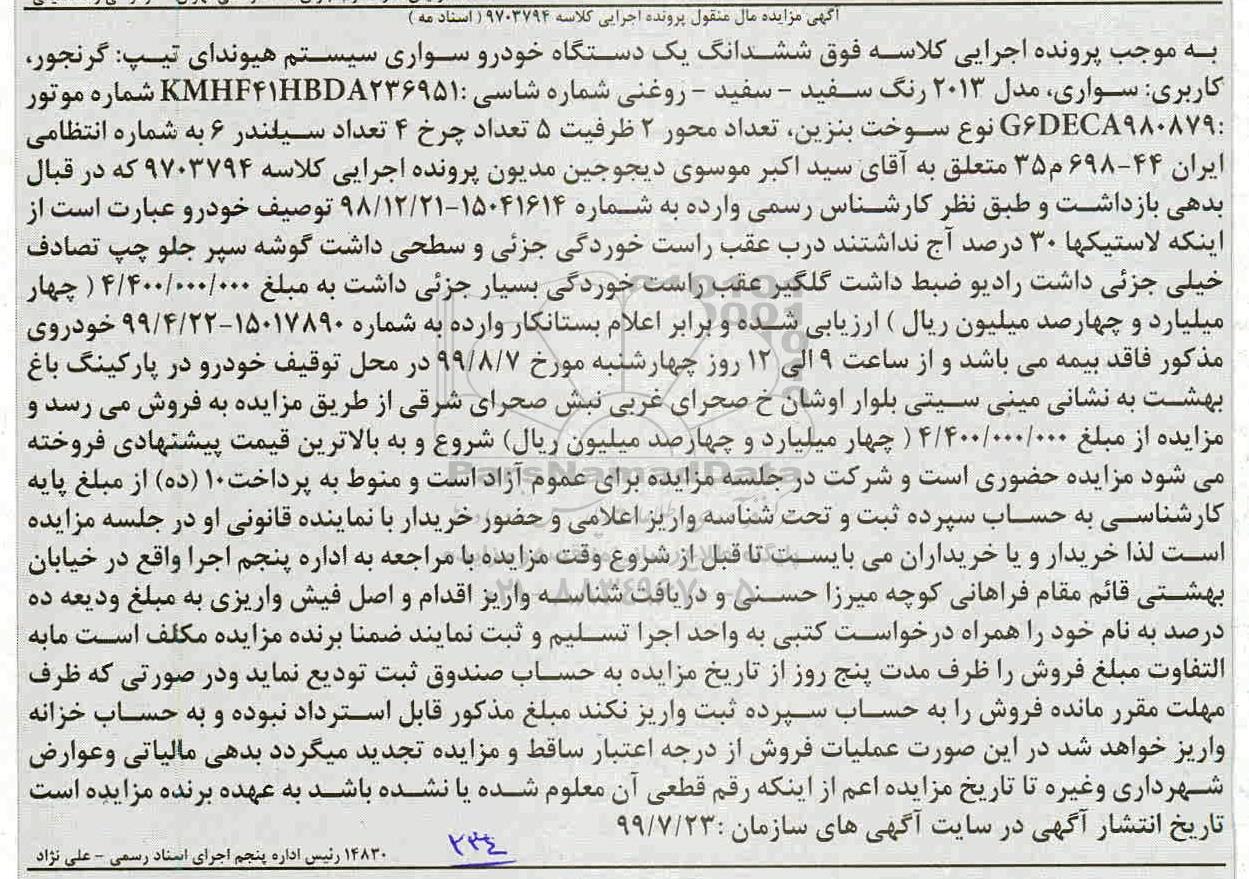 آگهی مزایده مال منقول پرونده اجرایی کلاسه ۹۷۰۳۷۹۴ ( اسناد مه )
به موجب پرونده اجرایی کلاسه فوق ششدانگ یک دستگاه خودرو سواری سیستم هیوندای تیپ: گرنجور،
کاربری: سواری، مدل ۲۰۱۳ رنگ سفید - سفید - روغنی شماره شاسی :KMHF۴۱HBDA۲۳۶۹۵۱ شماره موتور
:G۶DECA۹۸۰۸۷۹ نوع سوخت بنزین، تعداد محور ۲ ظرفیت ۵ تعداد چرخ ۴ تعداد سیلندر ۶ به شماره انتظامی
ایران ۴۴-۶۹۸ م۳۵ متعلق به آقای سید اکبر موسوی دیجوجین مدیون پرونده اجرایی کلاسه ۹۷۰۳۷۹۴ که در قبال
بدهی بازداشت و طبق نظر کارشناس رسمی وارده به شماره ۱۵۰۴۱۶۱۴-۹۸/۱۲/۲۱ توصیف خودرو عبارت است از
اینکه لاستیکها ۳۰ درصد آج نداشتند درب عقب راست خوردگی جزئی و سطحی داشت گوشه سپر جلو چپ تصادف
خیلی جزئی داشت رادیو ضبط داشت گلگیر عقب راست خوردگی بسیار جزئی داشت به مبلغ ۴/۴۰۰/۰۰۰/۰۰۰ ( چهار
میلیارد و چهارصد میلیون ریال ) ارزیابی شده و برابر اعلام بستانکار وارده به شماره ۱۵۰۱۷۸۹۰-۹۹/۴/۲۲ خودروی
مذکور فاقد بیمه می باشد و از ساعت ۹ الی ۱۲ روز چهارشنبه مورخ ۹۹/۸/۷ در محل توقیف خودرو در پارکینگ باغ
بهشت به نشانی مینی سیتی بلوار اوشان خ صحرای غربی نبش صحرای شرقی از طریق مزایده به فروش می رسد و
مزایده از مبلغ ۴/۴۰۰/۰۰۰/۰۰۰ ( چهار میلیارد و چهارصد میلیون ریال) شروع و به بالاترین قیمت پیشنهادی فروخته
می شود مزایده حضوری است و شرکت در جلسه مزایده برای عموم آزاد است و منوط به پرداخت۱۰ (ده) از مبلغ پایه
کارشناسی به حساب سپرده ثبت و تحت شناسه واریز اعلامی و حضور خریدار با نماینده قانونی او در جلسه مزایده
است لذا خریدار و یا خریداران می بایست تا قبل از شروع وقت مزایده با مراجعه به اداره پنجم اجرا واقع در خیابان
بهشتی قائم مقام فراهانی کوچه میرزا حسنی و دریافت شناسه واریز اقدام و اصل فیش واریزی به مبلغ ودیعه ده
درصد به نام خود را همراه درخواست کتبی به واحد اجرا تسلیم و ثبت نمایند ضمنا برنده مزایده مکلف است مابه
التفاوت مبلغ فروش را ظرف مدت پنج روز از تاریخ مزایده به حساب صندوق ثبت تودیع نماید ودر صورتی که ظرف
مهلت مقرر مانده فروش را به حساب سپرده ثبت واریز نکند مبلغ مذکور قابل استرداد نبوده و به حساب خزانه
واریز خواهد شد در این صورت عملیات فروش از درجه اعتبار ساقط و مزایده تجدید میگردد بدهی مالیاتی وعوارض
شهرداری وغیره تا تاریخ مزایده اعم از اینکه رقم قطعی آن معلوم شده یا نشده باشد به عهده برنده مزایده است
تاریخ انتشار آگهی در سایت آگهی های سازمان :۹۹/۷/۲۳
۲۳۴
۱۴۸۳۰ رئیس اداره پنجم اجرای اسناد رسمی - علی نژاد
ParsNamadData
۰۲۱-۸۸۳۴۹۶۷۰-۵